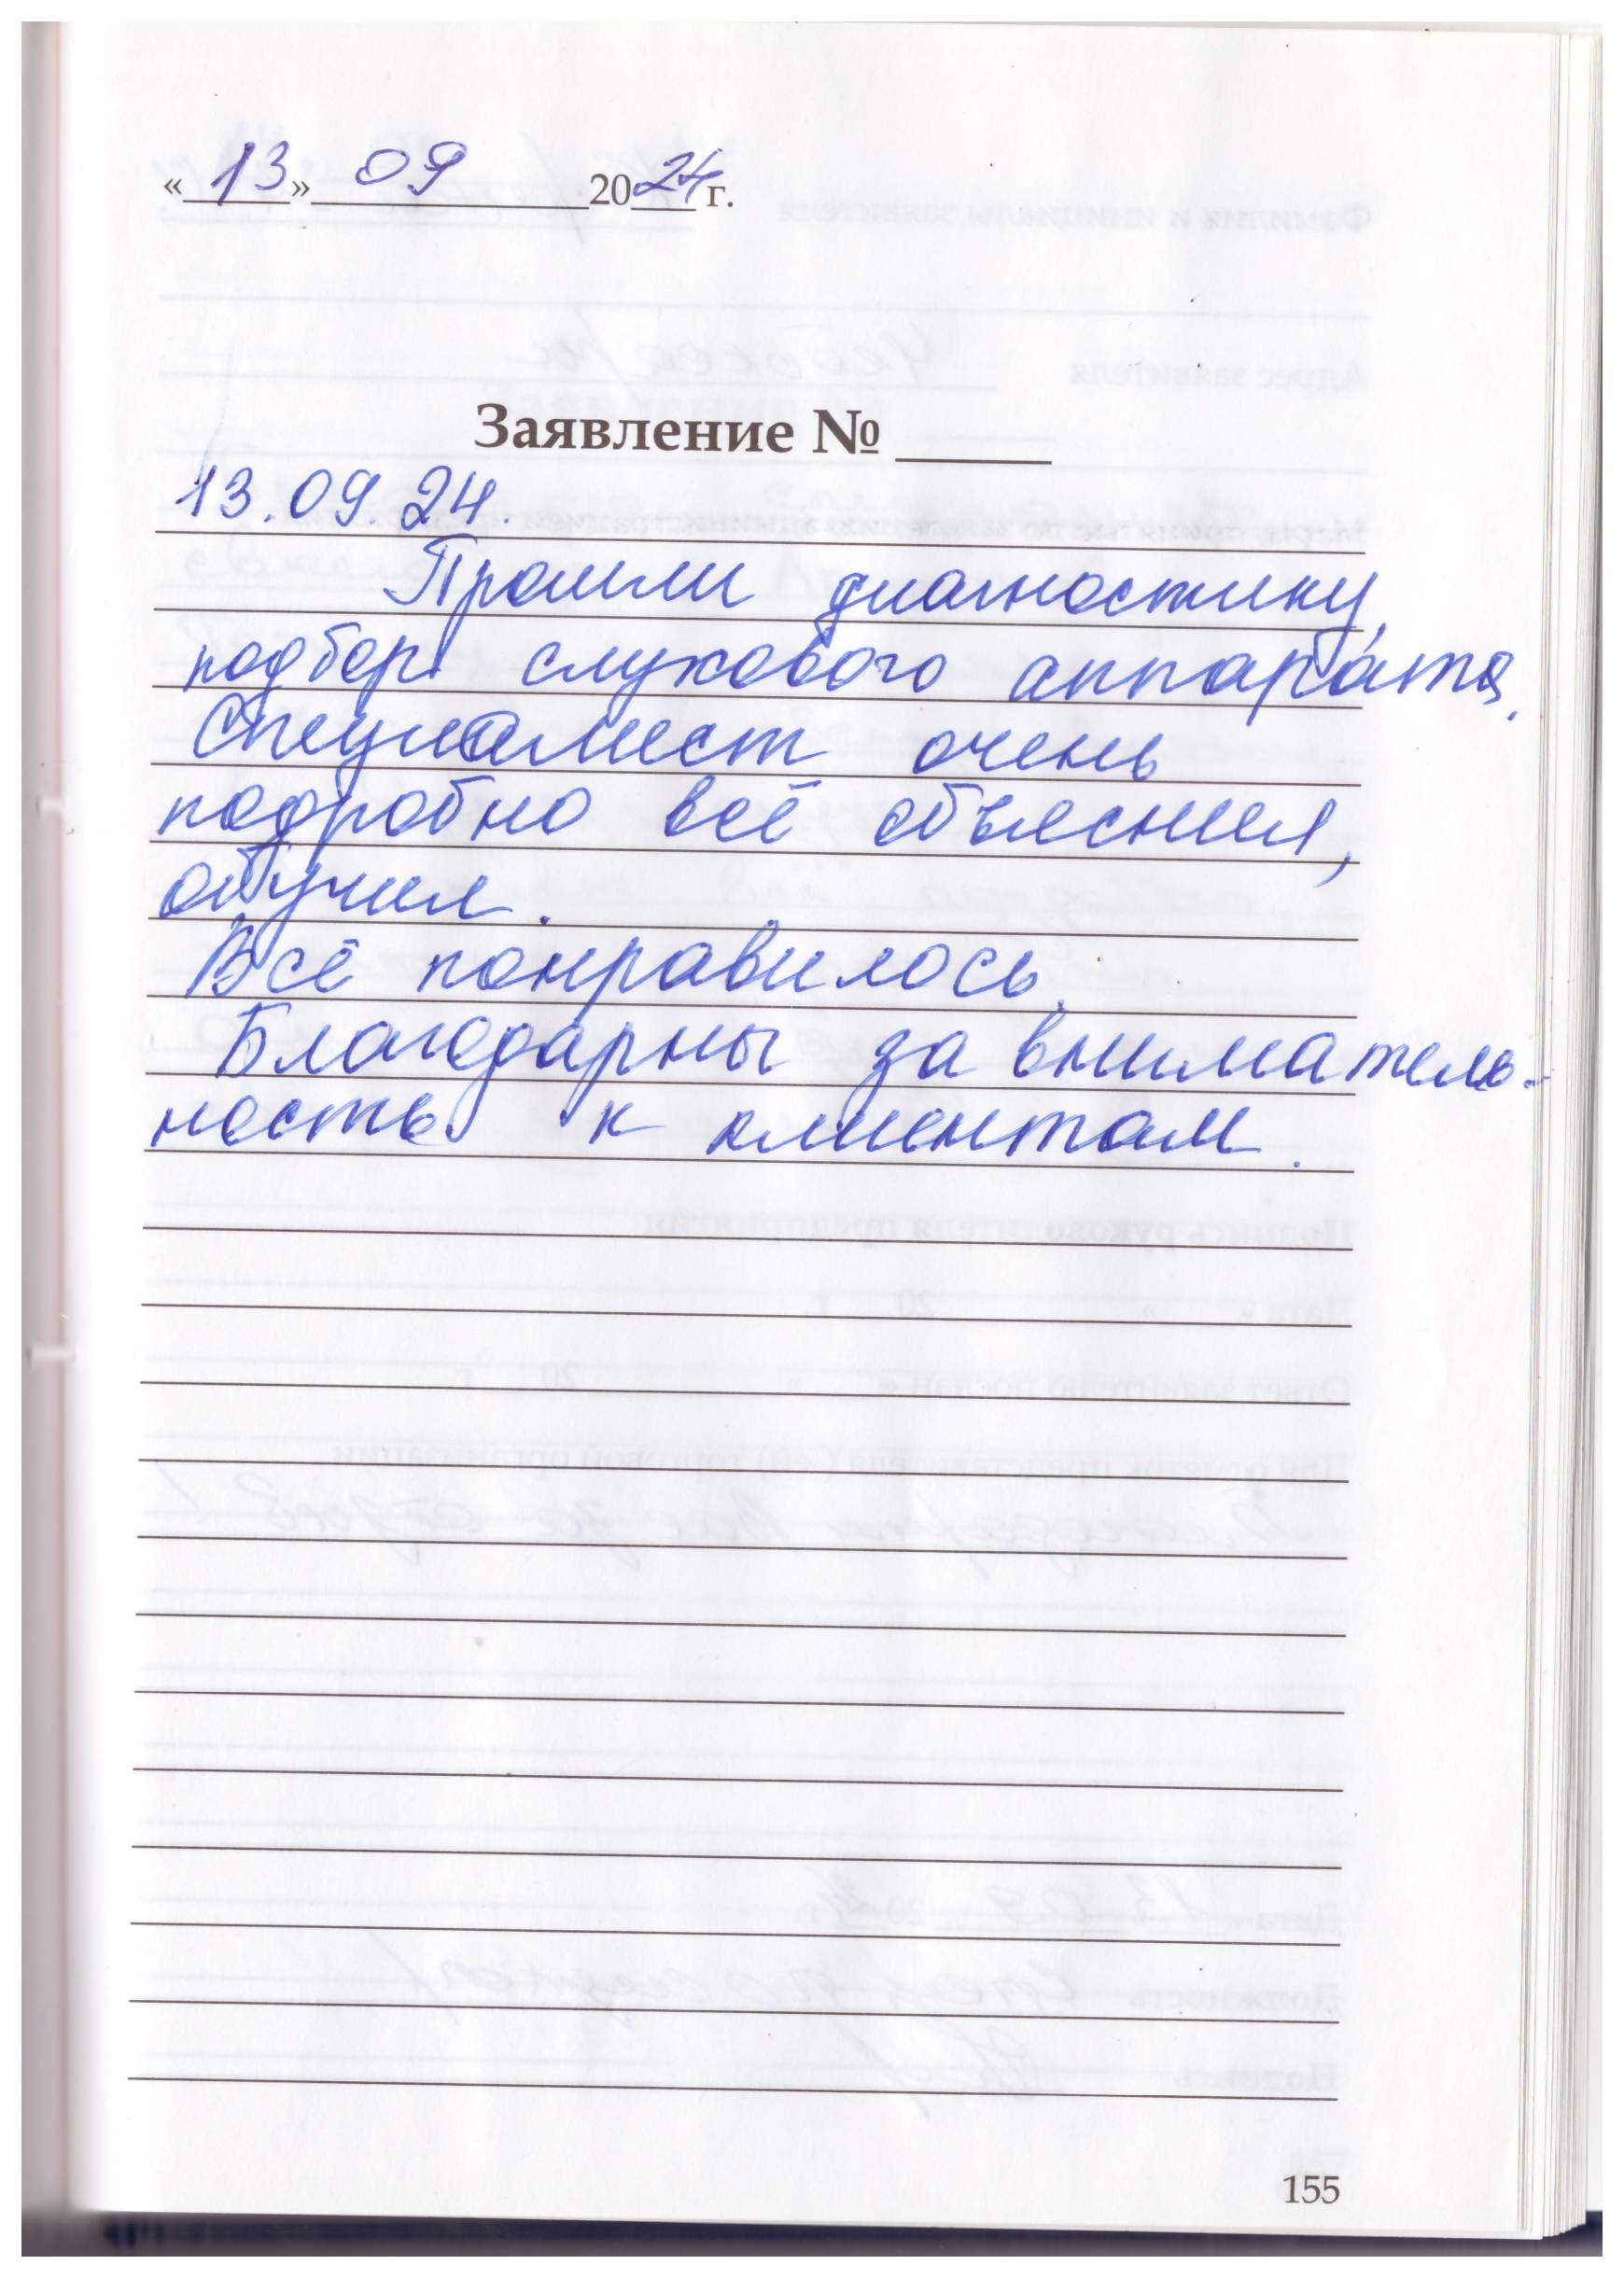 «13» 09 2024 г.
Заявление № ____
13.09.24.
Прошли диагностику,
подбор слухового аппарата.
Специалист очень
подробно всё объяснил,
обучил.
Всё понравилось.
Благодарны за вниматель-
ность к клиентам.
155